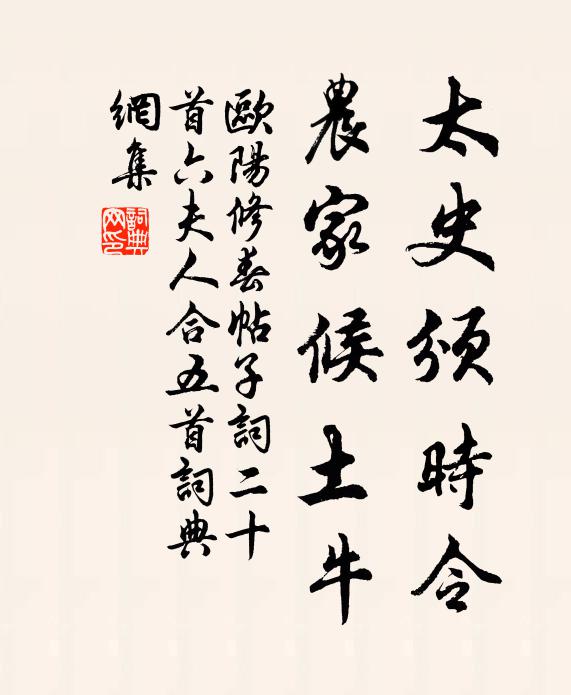 太史頒時令
農家候土牛
歐陽修春帖子詞二十
首六夫人合五首詞典
網集
詞典
网印